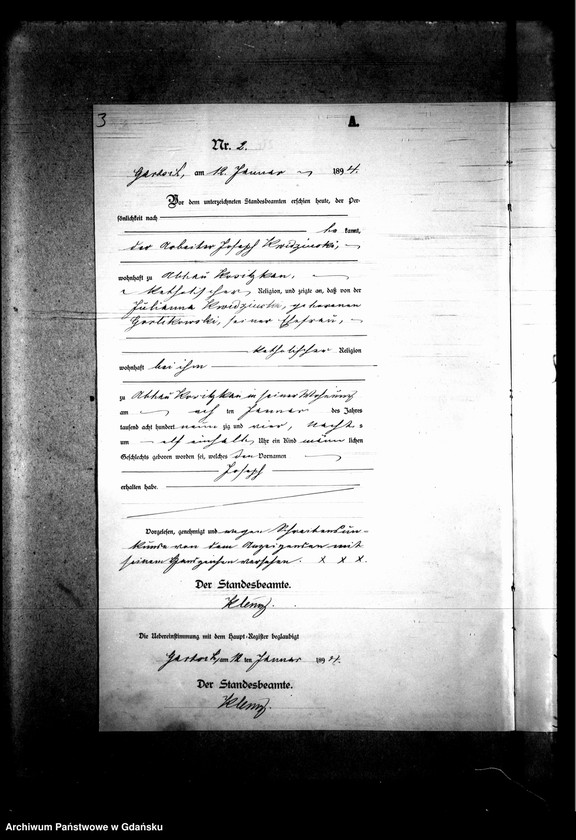 3
A.
Nr. 2.
am 12. Januar 1894.
Vor dem unterzeichneten Standesbeamten erschien heute, der Per-
sönlichkeit nach
be kannt,
der Arbeiter Joseph Kwidzinski,
wohnhaft zu Abbau
katholischer Religion, und zeigte an, daß von der
Julianna Kwidzinska, geborenen
Gerlikowski, seiner Ehefrau,
katholischer Religion
wohnhaft bei ihm
zu Abbau in seiner Wohnung
am ten Januar des Jahres
tausend acht hundert neun zig und vier, Nachts
um elf einhalb Uhr ein Kind männ lichen
Geschlechts geboren worden sei, welches den Vornamen
Joseph
erhalten habe.
Vorgelesen, genehmigt und wegen Schreibensun-
kunde von dem Anzeigenden mit
seinem Handzeichen versehen. x x x.
Der Standesbeamte.
Klemp.
Die Uebereinstimmung mit dem Haupt-Register beglaubigt
am 12 ten Januar 1894.
Der Standesbeamte.
Klemp.
Archiwum Państwowe w Gdańsku